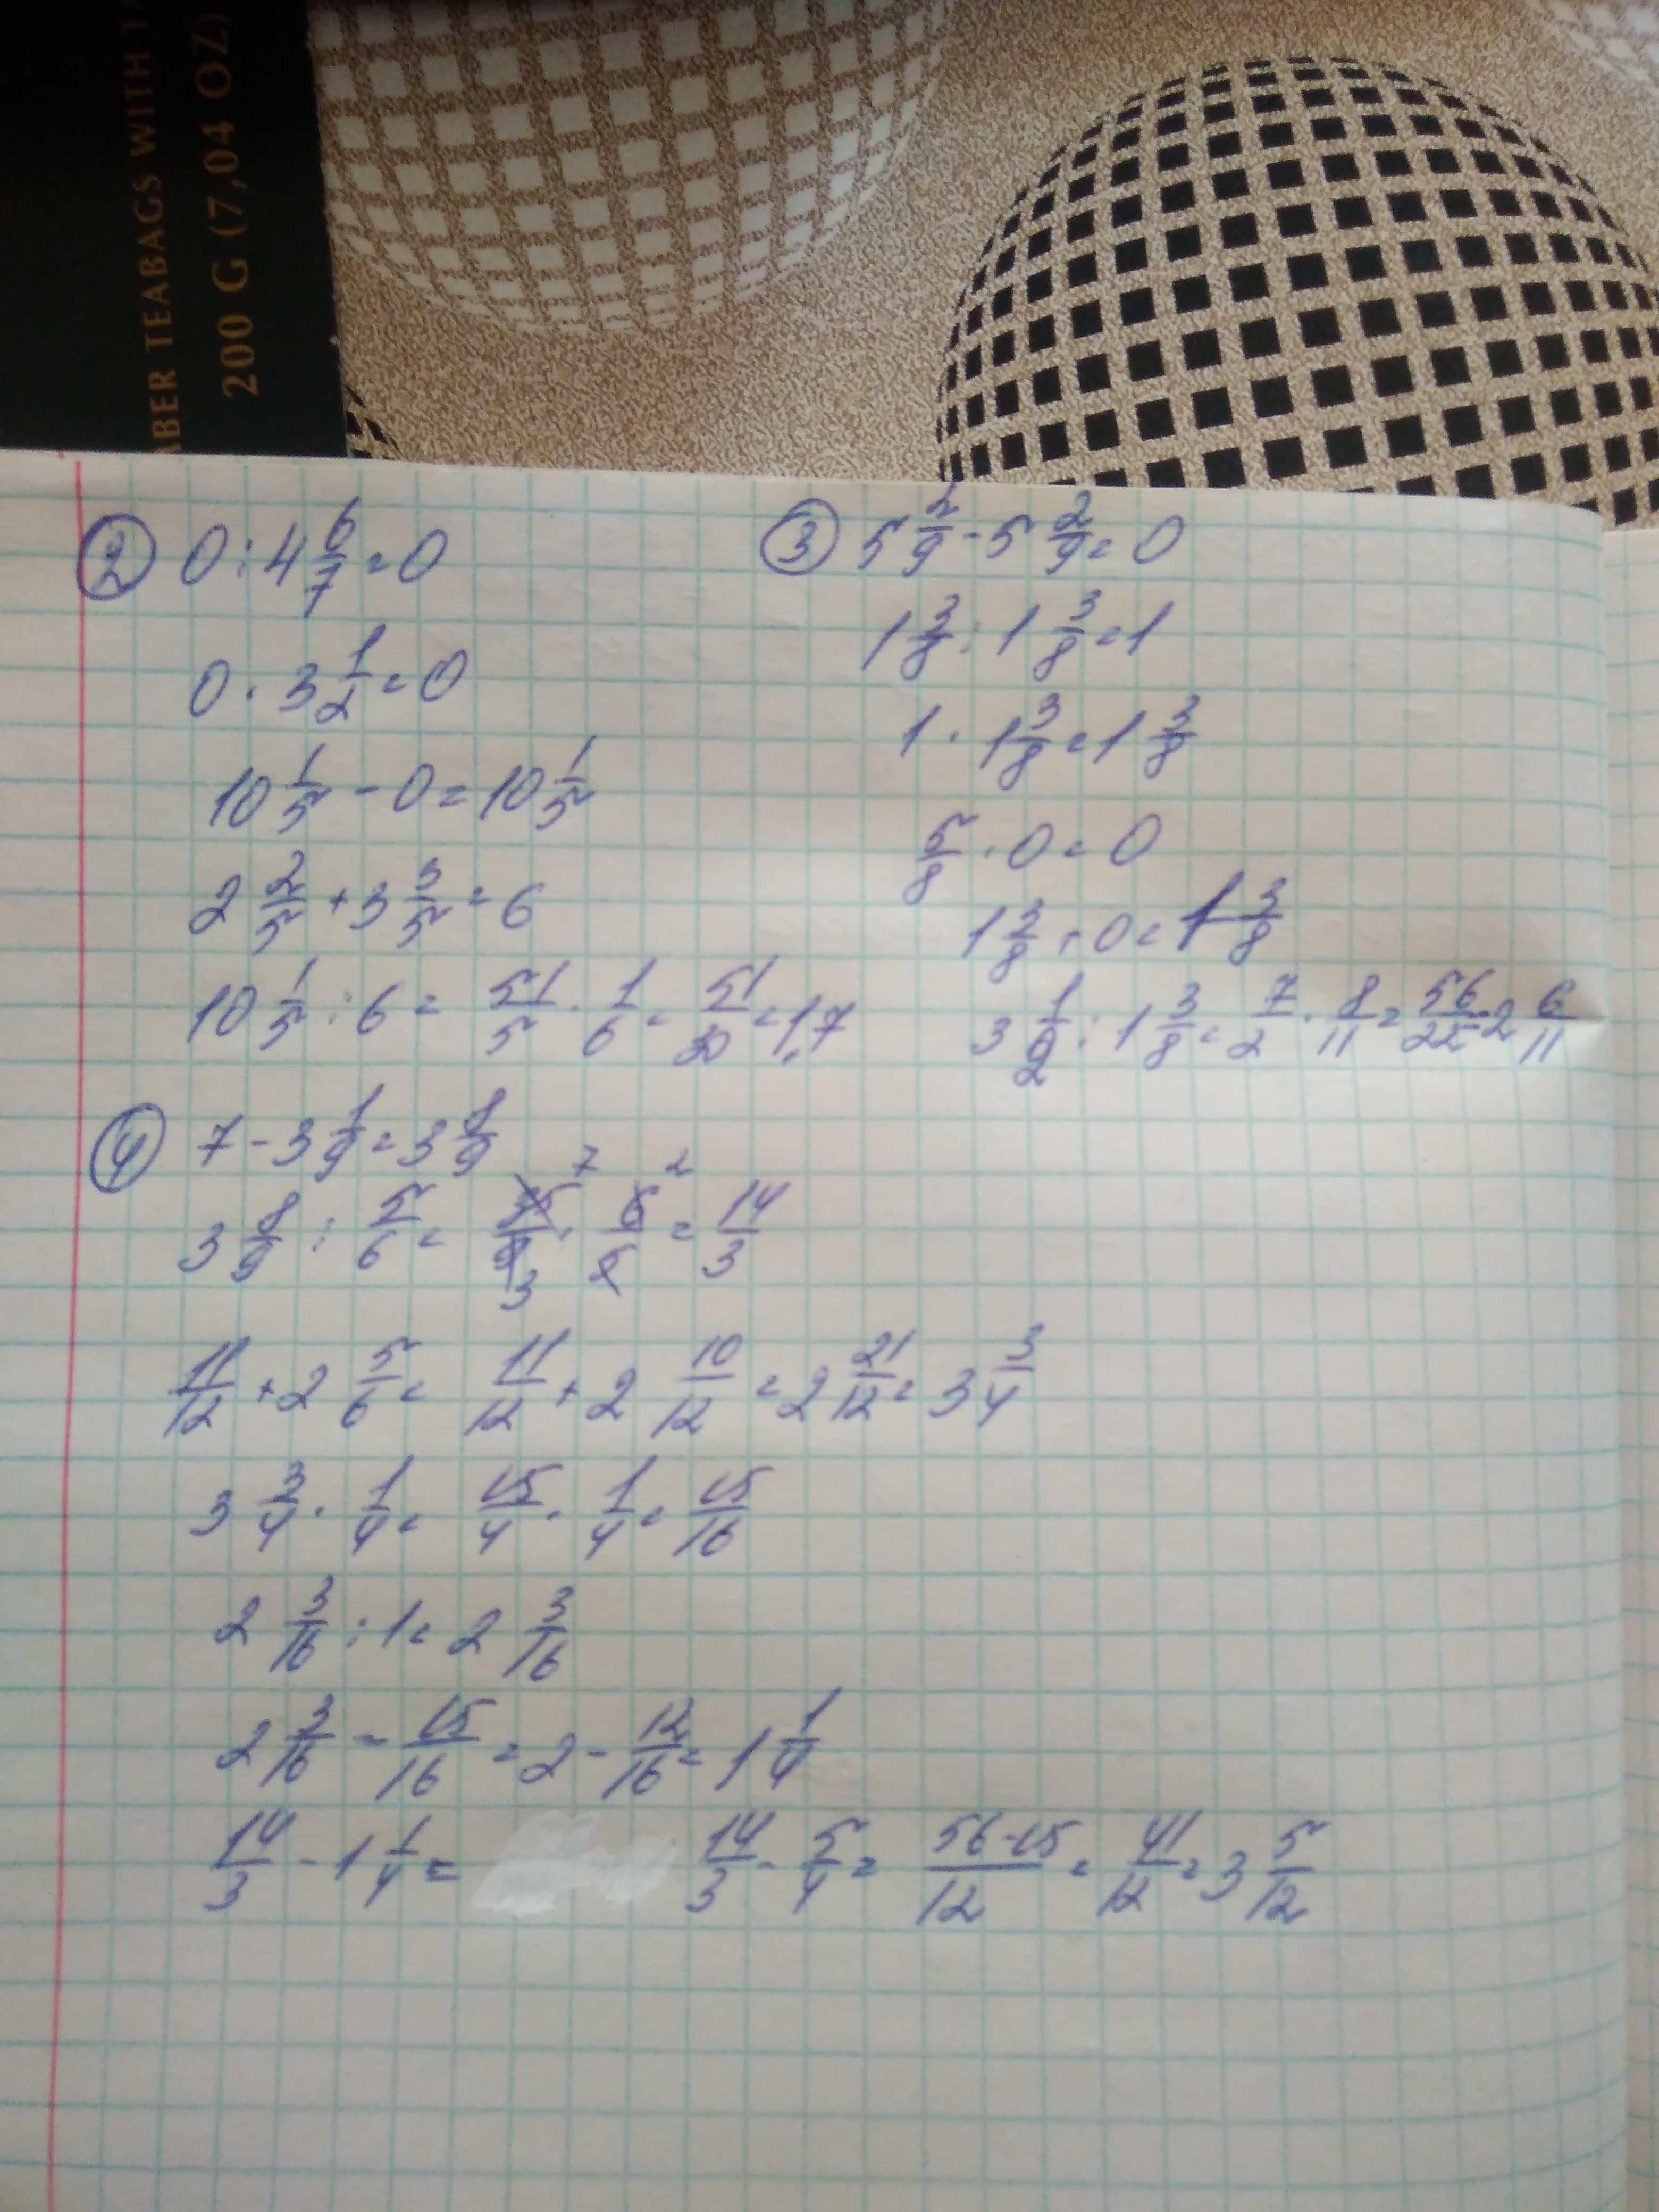 BER TEABAGS WITH TA
200 G (7,04 OZ)
② 0 : 4 6/7 = 0
0 · 3 1/2 = 0
10 1/5 - 0 = 10 1/5
2 2/5 + 3 3/5 = 6
10 1/5 : 6 = 51/5 · 1/6 = 51/30 = 1,7
③ 5 2/9 - 5 2/9 = 0
1 3/8 : 1 3/8 = 1
1 · 1 3/8 = 1 3/8
5/8 · 0 = 0
1 3/8 + 0 = 1 3/8
3 1/2 : 1 3/8 = 7/2 · 8/11 = 56/22 = 2 6/11
④ 7 - 3 1/9 = 3 8/9
7 2
3 8/9 : 5/6 = 35/9 · 6/5 = 14/3
3
11/12 + 2 5/6 = 11/12 + 2 10/12 = 2 21/12 = 3 3/4
3 3/4 · 1/4 = 15/4 · 1/4 = 15/16
2 3/16 : 1 = 2 3/16
2 3/16 - 15/16 = 2 - 12/16 = 1 1/4
14/3 - 1 1/4 = 14/3 - 5/4 = 56-15/12 = 41/12 = 3 5/12